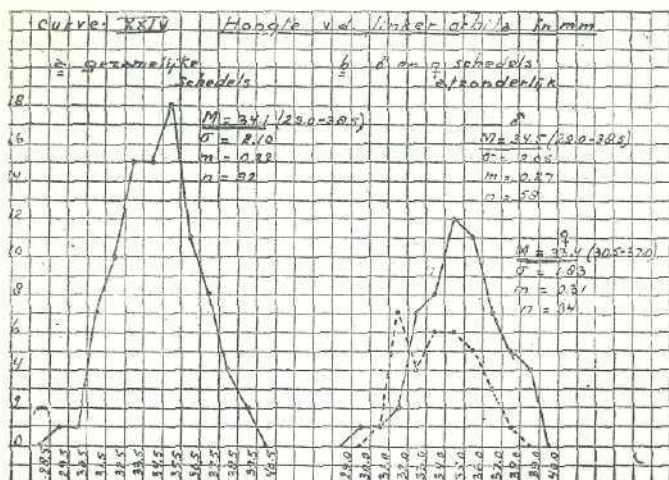 Curve XXIV Hoogte v.d. linker orbita in mm
a gezamelijke
schedels
b ♂ en ♀ schedels
afzonderlijk
M = 34.1 (29.0-38.5)
σ = 2.10
m = 0.22
n = 92
♂
M = 34.5 (29.0-38.5)
σ = 2.05
m = 0.27
n = 58
♀
M = 33.4 (30.5-37.0)
σ = 1.83
m = 0.31
n = 34
18
16
12
10
8
6
4
2
0
28.5 29.5 30.5 31.5 32.5 33.5 34.5 35.5 36.5 37.5 38.5 39.5 40.5
29.0 30.0 31.0 32.0 33.0 34.0 35.0 36.0 37.0 38.0 39.0 40.0